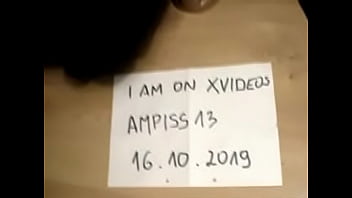 I AM ON XVIDEOS
AMPISS 13
16.10.2019